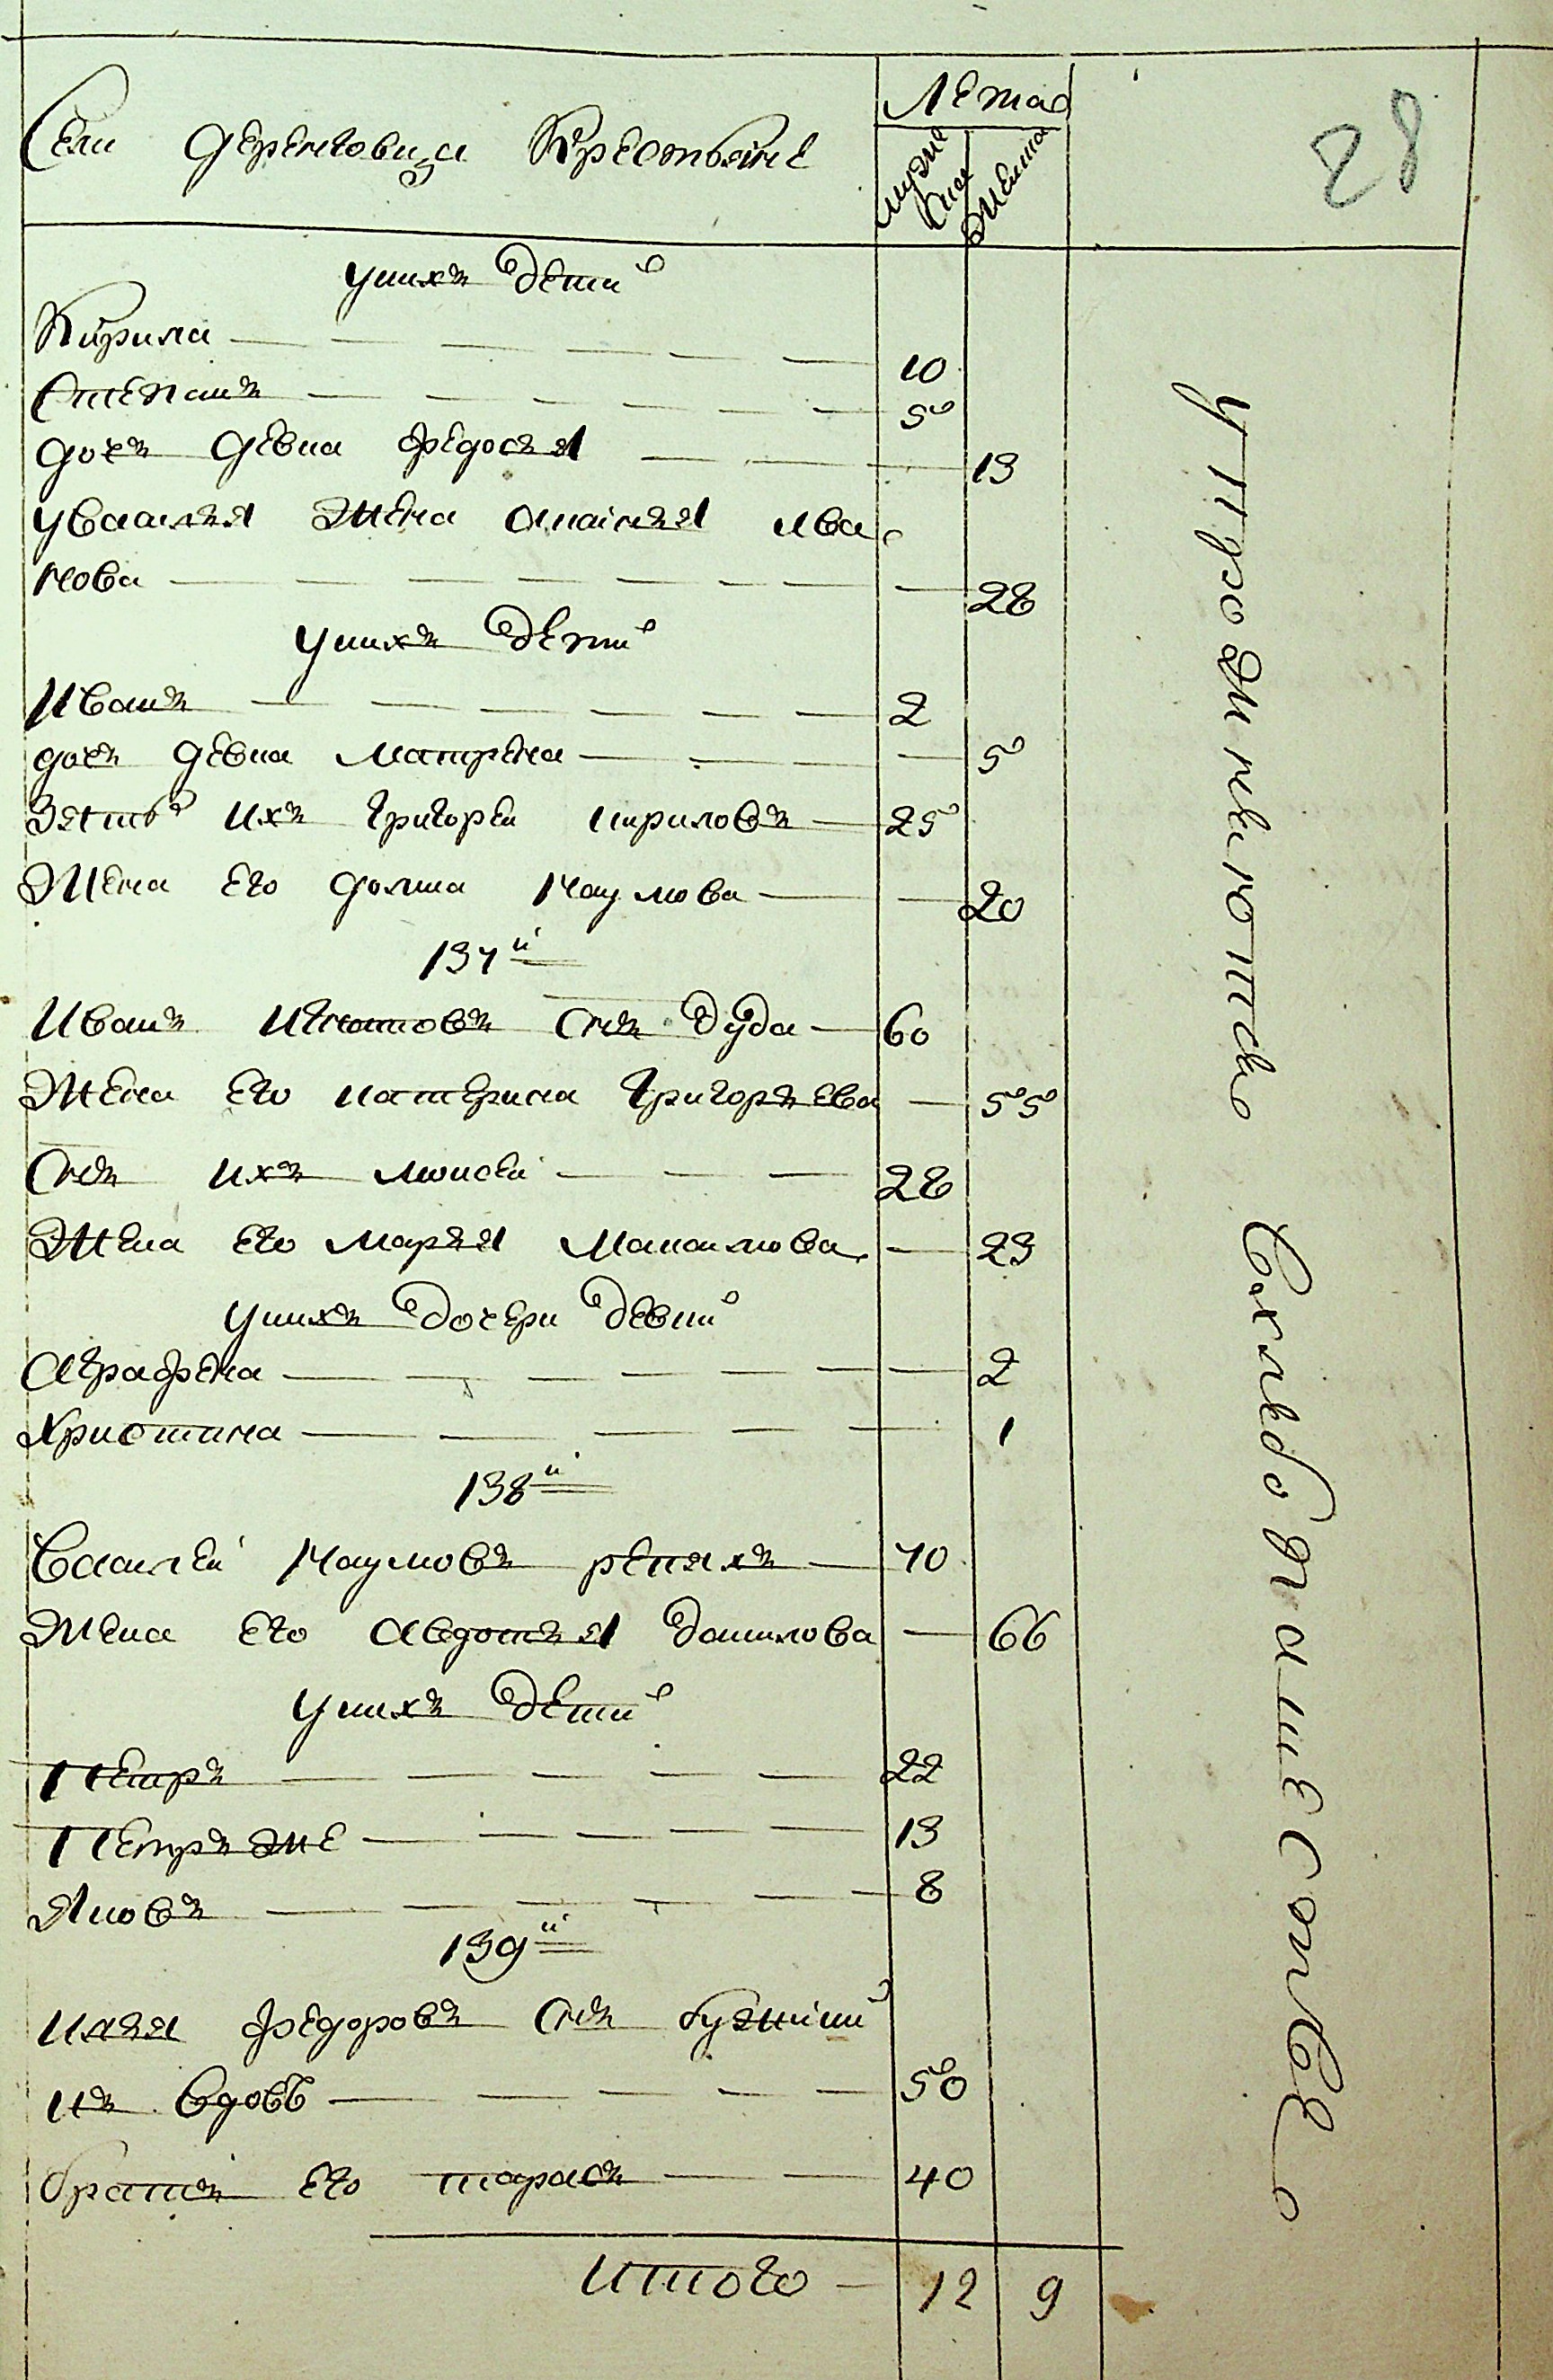 Села деренговца крестьяне
Лета
мужеска
женска
28
у них детй
Кирила — 10
Степанъ — 5
дочь девка федосья — 13
у василья жена анасья ива
нова — 28
у них детй
Иванъ — 2
дочь девка матрена — 5
Зять ихъ григорей кирилов — 25
Жена его домна наумова — 20
137й
Иванъ игнатовъ снъ дуда — 60
Жена его катерина григорьева — 55
Снъ ихъ моисей — 28
Жена его марья мака мова — 23
у нихъ дочери девки
Аграфена — 2
Христина — 1
138й
Василей наумовъ репяхъ — 70
Жена его авдотья данилова — 66
у нихъ детй
Петръ — 22
Петръ же — 13
Яковъ — 8
139й
илья федоровъ снъ
къ вдовъ — 50
братъ его тарасъ — 40
итого — 12 9